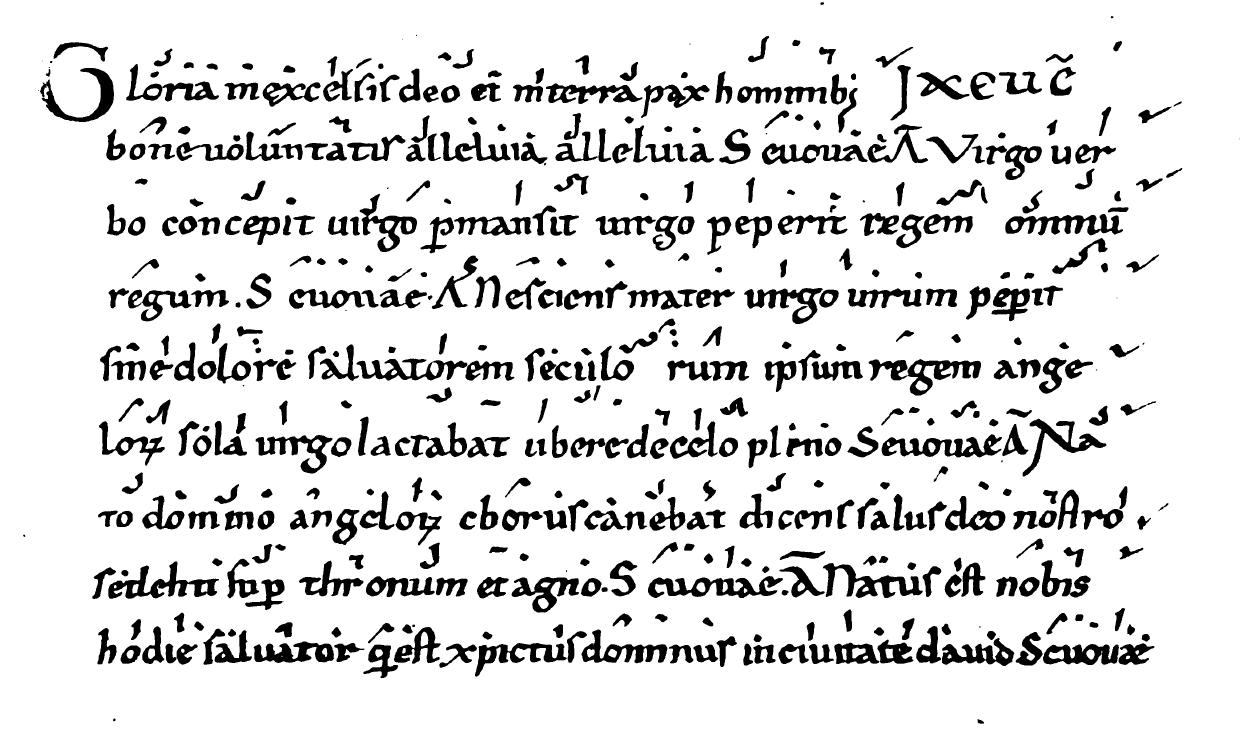 Gloria in excelsis deo et in terra pax hominib; IN EUC̄
bone uoluntatis alleluia alleluia S euouae A Virgo uer
bo concepit uirgo p̄mansit uirgo peperit regem omniū
regum. S euouae. A Nesciens mater uirgo uirum pep̲it
sine dolore saluatorem seculo rum ipsum regem ange
loꝝ sola uirgo lactabat ubere de celo pleno S euouae A Na
to domino angeloꝝ chorus canebat dicens salus deo nostro
sedenti sup̲ thronum et agno. S euouae. A Natus est nobis
hodie saluator q̲ est xpictus dominus in ciuitate dauid S euouae